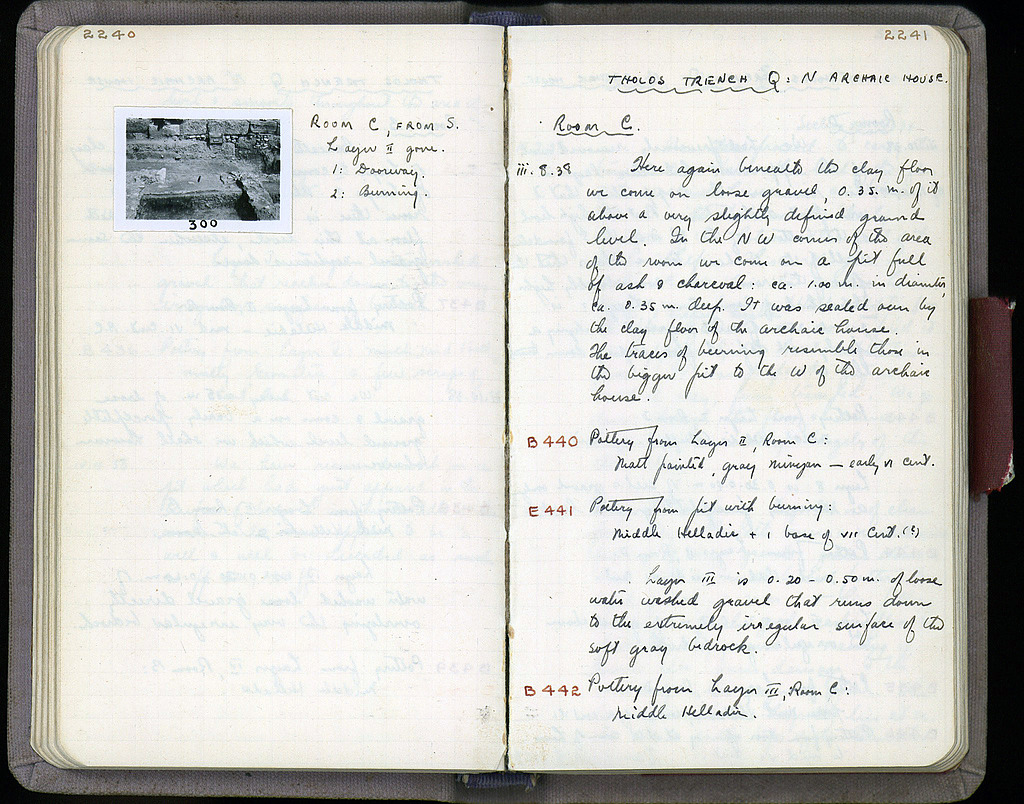 2240
ROOM C, FROM S.
Layer II gone.
1: Doorway.
2: Burning.
300
2241
THOLOS TRENCH Q: N ARCHAIC HOUSE.
Room C.
iii.8.38 Here again beneath the clay floor
we come on loose gravel, 0.35 m. of it
above a very slightly defined ground
level. In the NW corner of the area
of the room we come on a pit full
of ash & charcoal: ca. 1.00 m. in diameter,
ca. 0.35 m. deep. It was sealed over by
the clay floor of the archaic house.
The traces of burning resemble those in
the bigger pit to the W of the archaic
house.
B 440 Pottery from Layer II, Room C:
Matt painted, gray minyan — early VI cent.
E 441 Pottery from pit with burning:
Middle Helladic + 1 base of VII cent. (?)
Layer III is 0.20 - 0.50 m. of loose
water washed gravel that runs down
to the extremely irregular surface of the
soft gray bedrock.
B 442 Pottery from Layer III, Room C:
Middle Helladic.